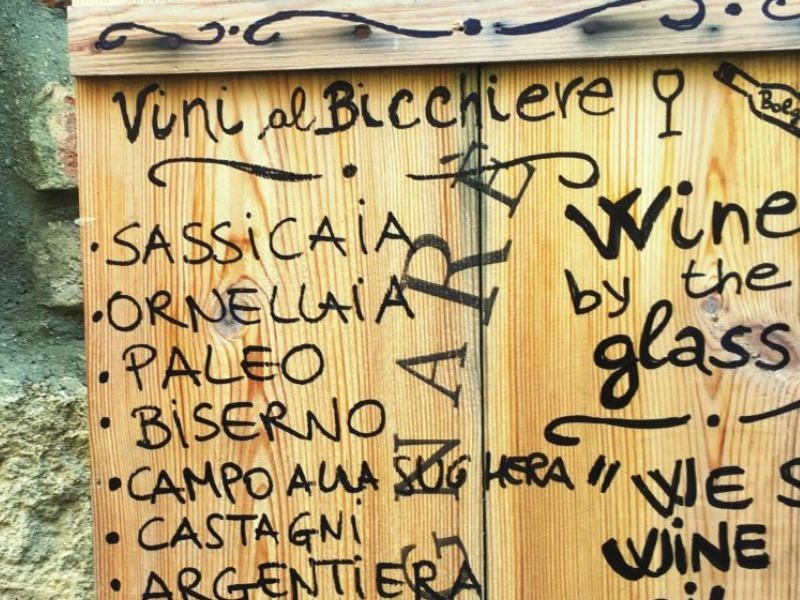 Vini al Bicchiere
Bolg
• SASSiCAiA
• ORNELLAiA
• PALEO
• BiSERNO
• CAMPO ALLA SUGHERA "
• CASTAGNi
• ARGENTiERA
Wine
by the
glass
WE S
WiNE